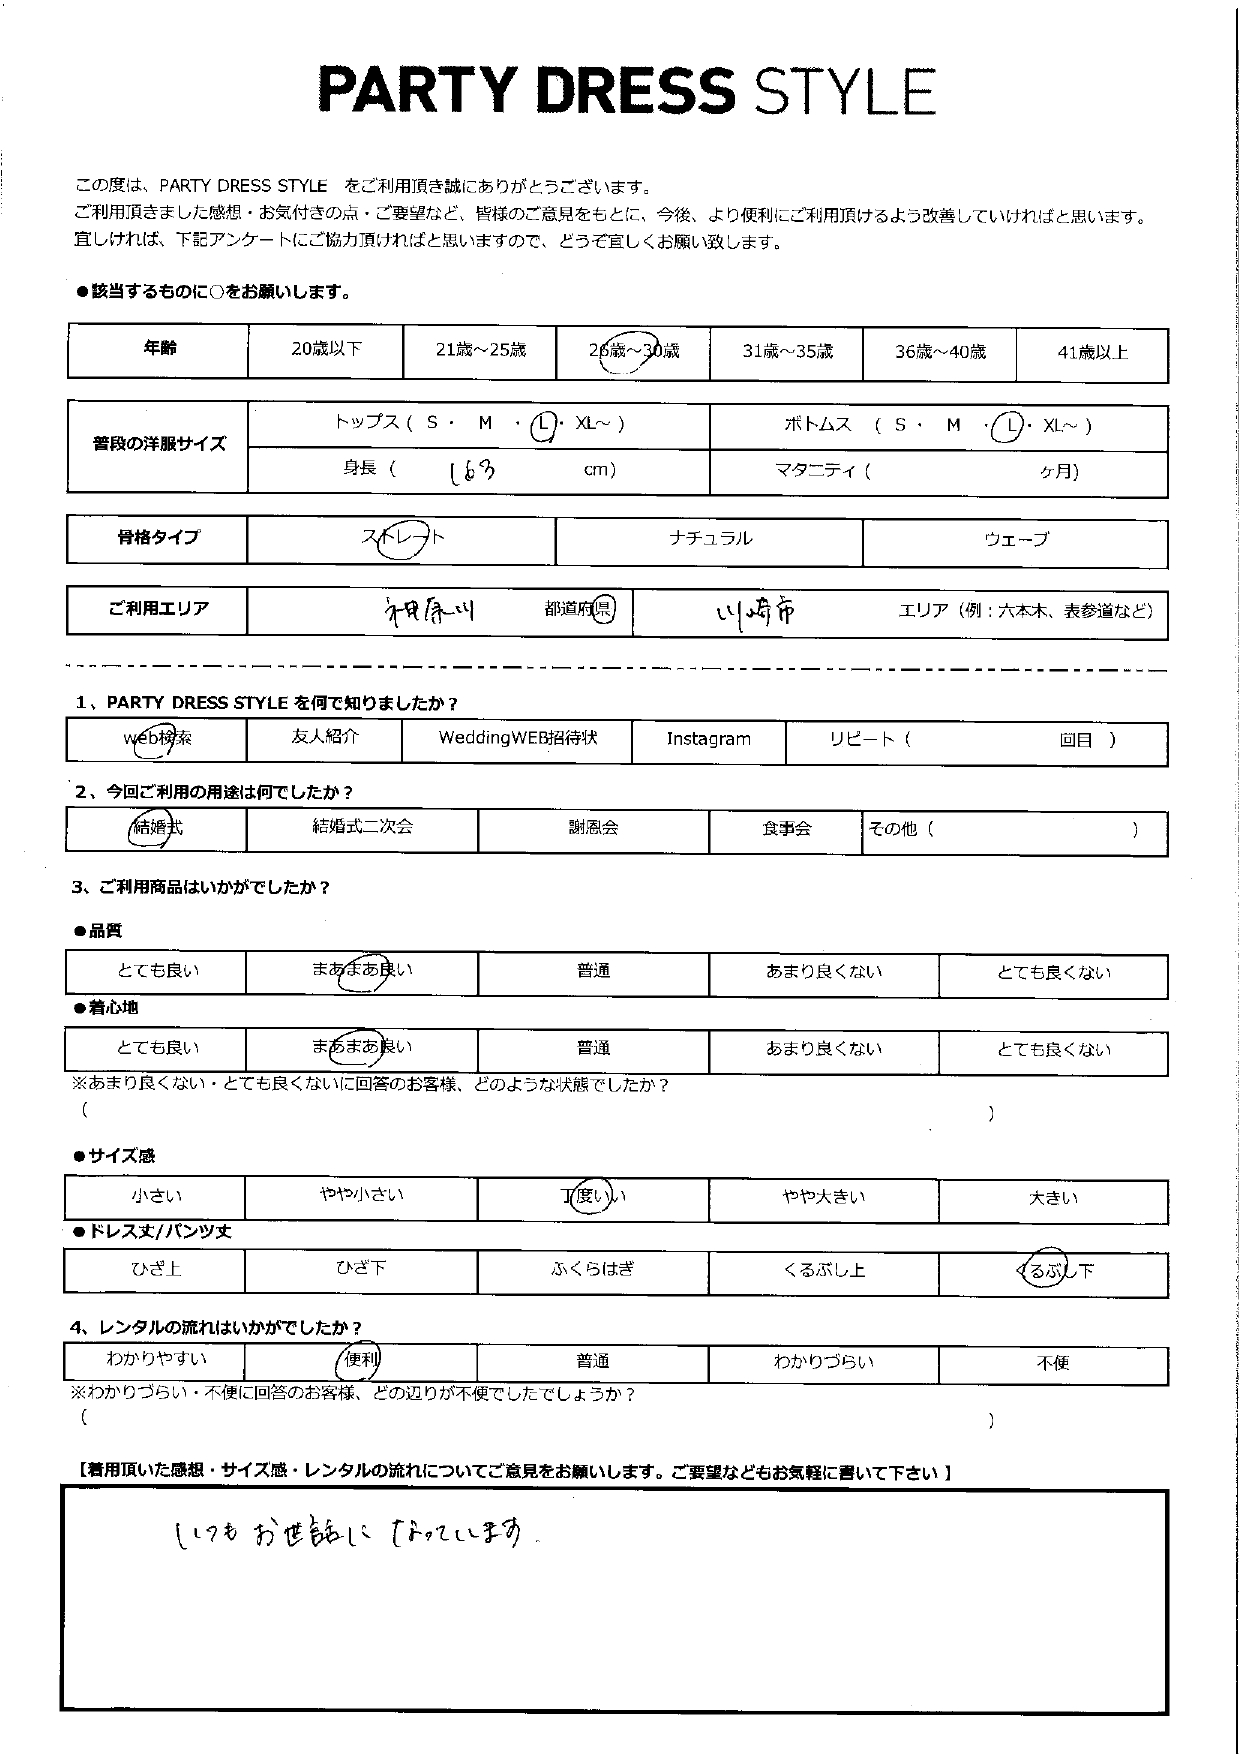 PARTY DRESS STYLE
この度は、PARTY DRESS STYLE をご利用頂き誠にありがとうございます。
ご利用頂きました感想・お気付きの点・ご要望など、皆様のご意見をもとに、今後、より便利にご利用頂けるよう改善していければと思います。
宜しければ、下記アンケートにご協力頂ければと思いますので、どうぞ宜しくお願い致します。
●該当するものに○をお願いします。
年齢 20歳以下 21歳～25歳 26歳～30歳 31歳～35歳 36歳～40歳 41歳以上
普段の洋服サイズ
トップス ( S ・ M ・ L ・ XL～ ) ボトムス ( S ・ M ・ L ・ XL～ )
身長 ( 163 cm) マタニティ ( ヶ月)
骨格タイプ ストレート ナチュラル ウェーブ
ご利用エリア 神奈川 都道府県 川崎市 エリア（例：六本木、表参道など）
1、PARTY DRESS STYLE を何で知りましたか？
web検索 友人紹介 WeddingWEB招待状 Instagram リピート ( 回目 )
2、今回ご利用の用途は何でしたか？
結婚式 結婚式二次会 謝恩会 食事会 その他 ( )
3、ご利用商品はいかがでしたか？
●品質
とても良い まあまあ良い 普通 あまり良くない とても良くない
●着心地
とても良い まあまあ良い 普通 あまり良くない とても良くない
※あまり良くない・とても良くないに回答のお客様、どのような状態でしたか？
( )
●サイズ感
小さい やや小さい 丁度いい やや大きい 大きい
●ドレス丈/パンツ丈
ひざ上 ひざ下 ふくらはぎ くるぶし上 くるぶし下
4、レンタルの流れはいかがでしたか？
わかりやすい 便利 普通 わかりづらい 不便
※わかりづらい・不便に回答のお客様、どの辺りが不便でしたでしょうか？
( )
【着用頂いた感想・サイズ感・レンタルの流れについてご意見をお願いします。ご要望などもお気軽に書いて下さい】
いつもお世話になっています.